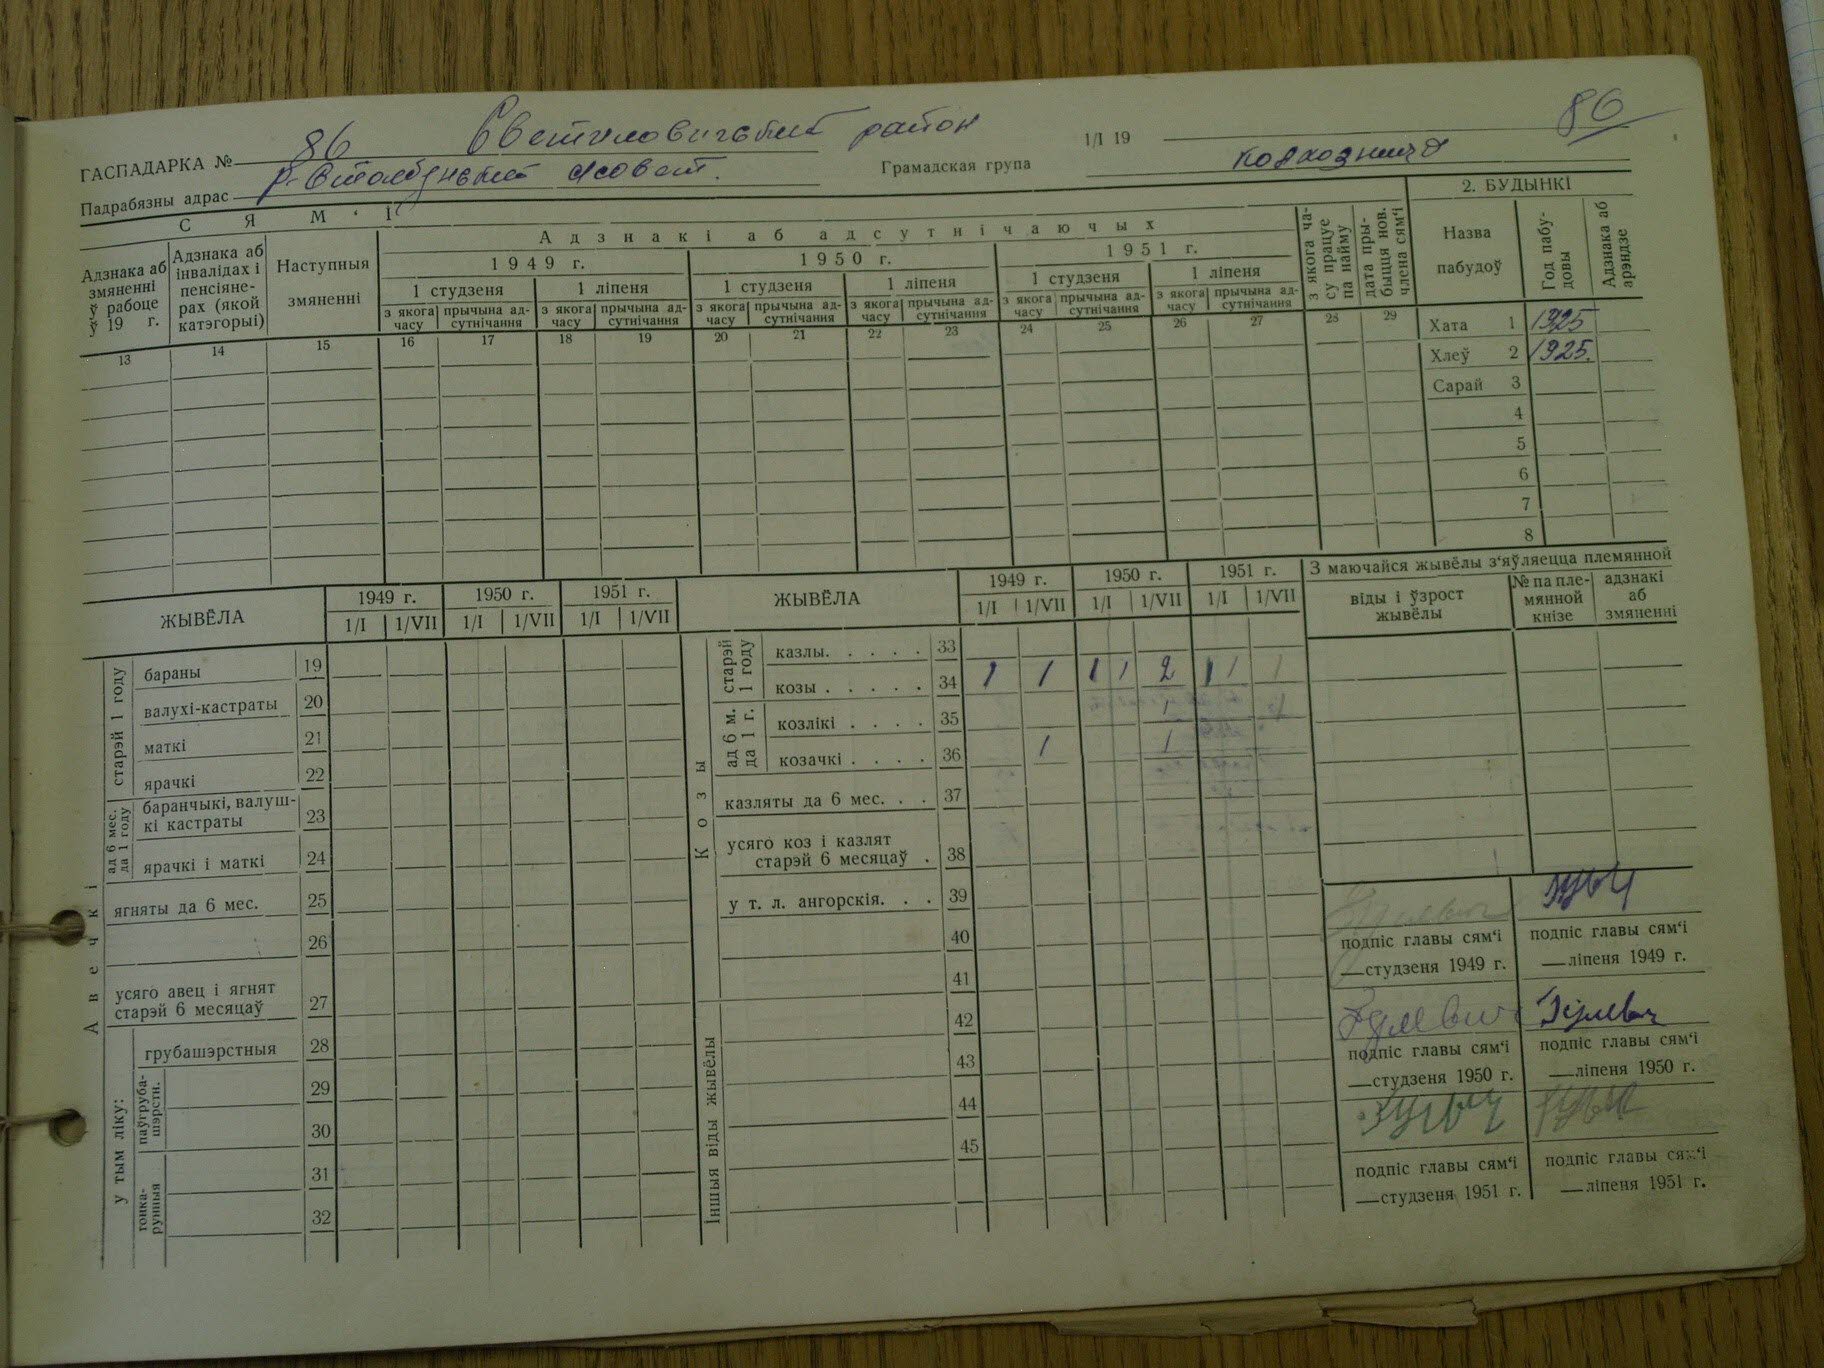 86
ГАСПАДАРКА № 86 Светиловичский район 1/I 19
Падрабязны адрас Р-Столбунский с/совет. Грамадская група
С Я М ‘ І
2. БУДЫНКІ
Адзнака аб змяненні ў рабоце ў 19 г.
Адзнака аб інвалідах і пенсіяне-рах (якой катэгорыі)
Наступныя змяненні
Адзнакі аб адсутнічаючых
1949 г. 1950 г. 1951 г.
1 студзеня 1 ліпеня 1 студзеня 1 ліпеня 1 студзеня 1 ліпеня
з якога часу прычына ад-сутнічання з якога часу прычына ад-сутнічання з якога часу прычына ад-сутнічання з якога часу прычына ад-сутнічання з якога часу прычына ад-сутнічання з якога часу прычына ад-сутнічання
з якога ча-су працуе па найму
дата пры-быцця нов. члена сям‘і
Назва пабудоў
Год пабу-довы
Адзнака аб арэндзе
13 14 15 16 17 18 19 20 21 22 23 24 25 26 27 28 29
Хата 1 1925
Хлеў 2 1925.
Сарай 3
4
5
6
7
8
ЖЫВЁЛА 1949 г. 1950 г. 1951 г.
1/I 1/VII 1/I 1/VII 1/I 1/VII
Авечкі
старэй 1 году
бараны 19
валухі-кастраты 20
маткі 21
ярачкі 22
ад 6 мес. да 1 году
баранчыкі, валуш-кі кастраты 23
ярачкі і маткі 24
ягняты да 6 мес. 25
26
усяго авец і ягнят
старэй 6 месяцаў 27
у тым ліку:
грубашэрстныя 28
паўгруба-шэрстн.
29
30
тонка-рунныя
31
32
ЖЫВЁЛА 1949 г. 1950 г. 1951 г.
1/I 1/VII 1/I 1/VII 1/I 1/VII
Козы
старэй 1 году
казлы. . . . . 33
козы . . . . . 34 1 1 1 1 2 1 1 1
ад 6 м. да 1 г.
козлікі . . . . 35 1
козачкі . . . . 36 1 1
казляты да 6 мес. . . 37
усяго коз і казлят
старэй 6 месяцаў . 38
у т. л. ангорскія. . . 39
40
41
Іншыя віды жывёлы
42
43
44
45
З маючайся жывёлы з‘яўляецца племянной
віды і ўзрост жывёлы
№ па пле-мянной кнізе
адзнакі аб змяненні
подпіс главы сям‘і
—студзеня 1949 г.
подпіс главы сям‘і
—ліпеня 1949 г.
подпіс главы сям‘і
—студзеня 1950 г.
подпіс главы сям‘і
—ліпеня 1950 г.
подпіс главы сям‘і
—студзеня 1951 г.
подпіс главы сям‘і
—ліпеня 1951 г.